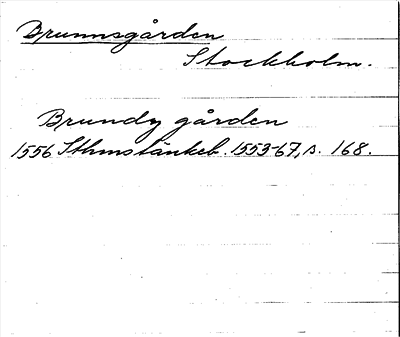 Brunnsgården
Stockholm.
Brundz gården
1556 Sthmstänkeb. 1553-67, s. 168.